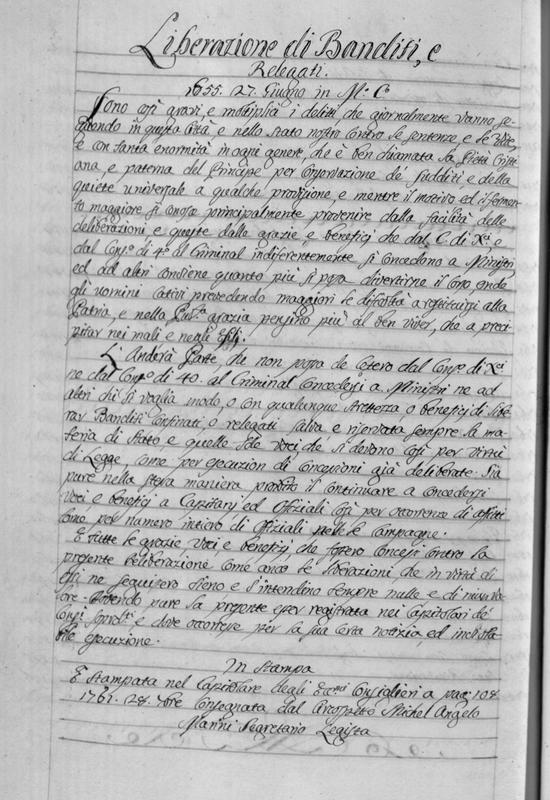 Liberazione di Banditi, e
Relegati.
1655. 27. Giugno in M. C.
Sono così gravi, e moltiplici i delitti, che giornalmente vanno se-
guendo in questa Città, e nello stato nostro contro le sentenze, e le Vite,
e con tanta enormità in ogni genere, che è ben chiamata la Pietà Cristi-
ana, e paterna del Principe per consolazione de' sudditi, e della
quiete universale a qualche provisione, e mentre il motivo ed il fomen-
to maggiore si conosce principalmente provenire dalla facilità delle
deliberazioni e queste dalle grazie, e beneficj che dal C. di X.ci e
dal Cons.o di 40 al Criminal indiferentemente si concedono a Ministri
ed ad altri conviene quanto più si possa divertirne il corso, onde
gli uomini cativi prevedendo maggiori le dificoltà a restituirsi alla
Patria, e nella Pub.a grazia pensino più al ben viver, che a preci-
pitar nei mali e negli Esilj.
L'Anderà Parte, che non possa de cetero dal Cons.o di X.ci
ne dal Cons.o di 40. al Criminal concedersi a Ministri ne ad
altri chi si voglia modo, o con qualunque strettezza o beneficj di libe-
rar Banditi Confinati, o relegati salva e riservata sempre la ma-
teria di Stato e quelle Voci che si devono così per virtù
di Legge, come per esecuzion di concessioni già deliberate. Sia
pure nella stessa maniera proibito il continuare a concedersi
Voci e beneficj a Capitanj ed Offiziali così per occorrenza di
come per numero intiero di Offiziali nelle Campagne.
E tutte le grazie, Voci e beneficj, che fossero concessi contro la
presente deliberazione come anco le liberazioni, che in virtù di
essi ne seguissero sieno, e s'intendino sempre nulle e di niun va-
lore. Dovendo pure la presente esser registrata nei Capitolari de'
Consj. sopradti e dove occorresse per la sua certa notizia, ed inviola-
bile esecuzione.
In Stampa
È Stampata nel Capitolare degli Ecc.mi Consiglieri a pag: 108
1761. 28. 7bre Consegnata dal Circospetto Michel Angelo
Marini Segretario Legista